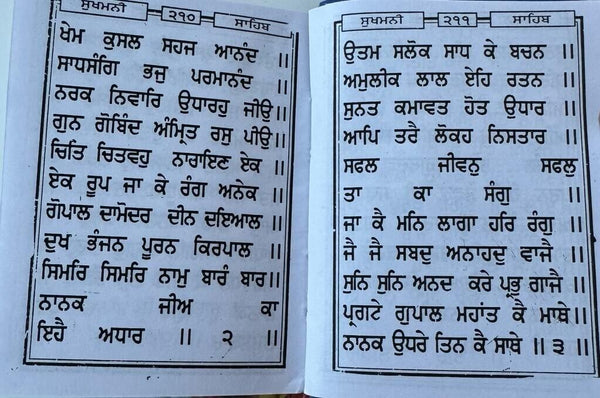 ਸੁਖਮਨੀ ੨੧੦ ਸਾਹਿਬ
ਖੇਮ ਕੁਸਲ ਸਹਜ ਆਨੰਦ ॥
ਸਾਧਸੰਗਿ ਭਜੁ ਪਰਮਾਨੰਦ ॥
ਨਰਕ ਨਿਵਾਰਿ ਉਧਾਰਹੁ ਜੀਉ ॥
ਗੁਨ ਗੋਬਿੰਦ ਅੰਮ੍ਰਿਤ ਰਸੁ ਪੀਉ ॥
ਚਿਤਿ ਚਿਤਵਹੁ ਨਾਰਾਇਣ ਏਕ ॥
ਏਕ ਰੂਪ ਜਾ ਕੇ ਰੰਗ ਅਨੇਕ ॥
ਗੋਪਾਲ ਦਾਮੋਦਰ ਦੀਨ ਦਇਆਲ ॥
ਦੁਖ ਭੰਜਨ ਪੂਰਨ ਕਿਰਪਾਲ ॥
ਸਿਮਰਿ ਸਿਮਰਿ ਨਾਮੁ ਬਾਰੰ ਬਾਰ॥
ਨਾਨਕ ਜੀਅ ਕਾ
ਇਹੈ ਅਧਾਰ ॥ ੨ ॥
ਸੁਖਮਨੀ ੨੧੧ ਸਾਹਿਬ
ਉਤਮ ਸਲੋਕ ਸਾਧ ਕੇ ਬਚਨ ॥
ਅਮੁਲੀਕ ਲਾਲ ਏਹਿ ਰਤਨ ॥
ਸੁਨਤ ਕਮਾਵਤ ਹੋਤ ਉਧਾਰ ॥
ਆਪਿ ਤਰੈ ਲੋਕਹ ਨਿਸਤਾਰ ॥
ਸਫਲ ਜੀਵਨੁ ਸਫਲੁ
ਤਾ ਕਾ ਸੰਗੁ ॥
ਜਾ ਕੈ ਮਨਿ ਲਾਗਾ ਹਰਿ ਰੰਗੁ ॥
ਜੈ ਜੈ ਸਬਦੁ ਅਨਾਹਦੁ ਵਾਜੈ ॥
ਸੁਨਿ ਸੁਨਿ ਅਨਦ ਕਰੇ ਪ੍ਰਭੁ ਗਾਜੈ ॥
ਪ੍ਰਗਟੇ ਗੁਪਾਲ ਮਹਾਂਤ ਕੈ ਮਾਥੇ॥
ਨਾਨਕ ਉਧਰੇ ਤਿਨ ਕੈ ਸਾਥੇ ॥ ੩ ॥